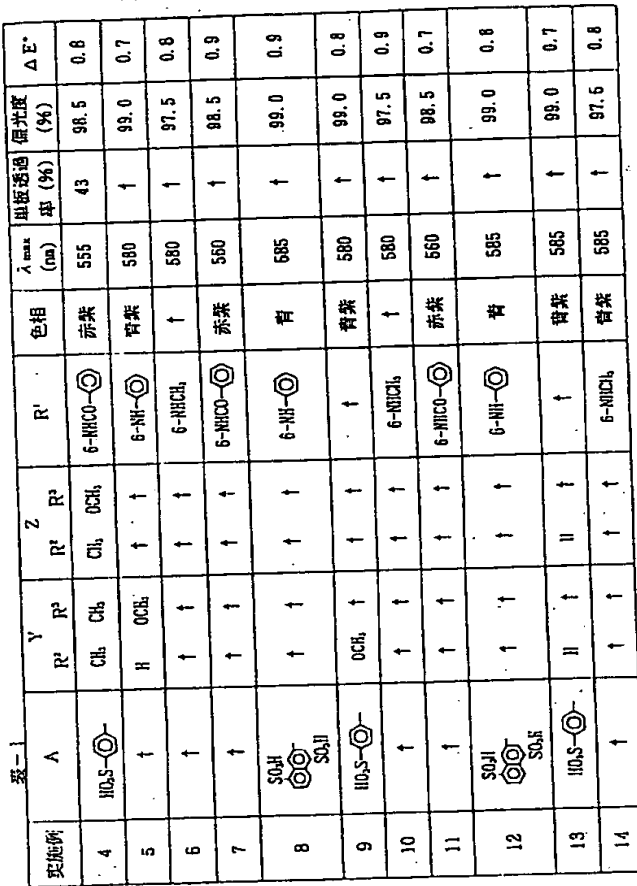 表-1
実施例 A Y R² R³ Z R² R³ R¹ 色相 λ max (nm) 単板透過率 (%) 偏光度 (%) Δ E*
4 HO₃S- CH₃ CH₃ CH₃ OCH₃ 6-NHCO- 赤紫 555 43 98.5 0.8
5 ↑ H OCH₃ ↑ ↑ 6-NH- 青紫 580 ↑ 99.0 0.7
6 ↑ ↑ ↑ ↑ ↑ 6-NHCH₃ ↑ 580 ↑ 97.5 0.8
7 ↑ ↑ ↑ ↑ ↑ 6-NHCO- 赤紫 560 ↑ 98.5 0.9
8 SO₃H SO₃H ↑ ↑ ↑ ↑ 6-NH- 青 585 ↑ 99.0 0.9
9 HO₃S- OCH₃ ↑ ↑ ↑ ↑ 青紫 580 ↑ 99.0 0.8
10 ↑ ↑ ↑ ↑ ↑ 6-NHCH₃ ↑ 580 ↑ 97.5 0.9
11 ↑ ↑ ↑ ↑ ↑ 6-NHCO- 赤紫 560 ↑ 98.5 0.7
12 SO₃H SO₃H ↑ ↑ ↑ ↑ 6-NH- 青 585 ↑ 99.0 0.8
13 HO₃S- H ↑ H ↑ ↑ 青紫 585 ↑ 99.0 0.7
14 ↑ ↑ ↑ ↑ ↑ 6-NHCH₃ 青紫 585 ↑ 97.5 0.8